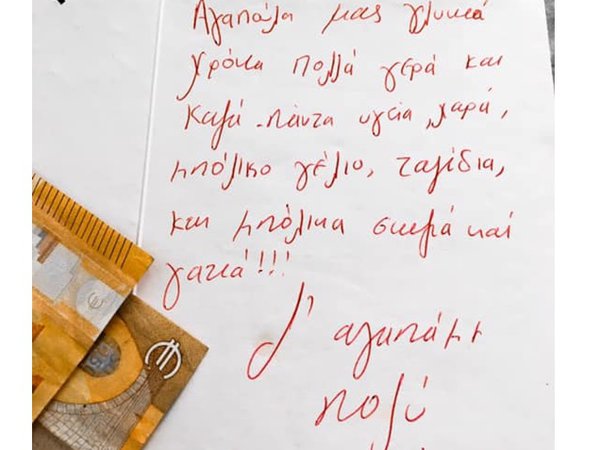 Αγαπούλα μας γλυκιά
χρόνια πολλά γερά και
καλά πάντα υγεία, χαρά,
μπόλικο γέλιο, ταξίδια,
και μπόλικα σκυλιά και
γατιά!!!
Σ' αγαπάμε
πολύ